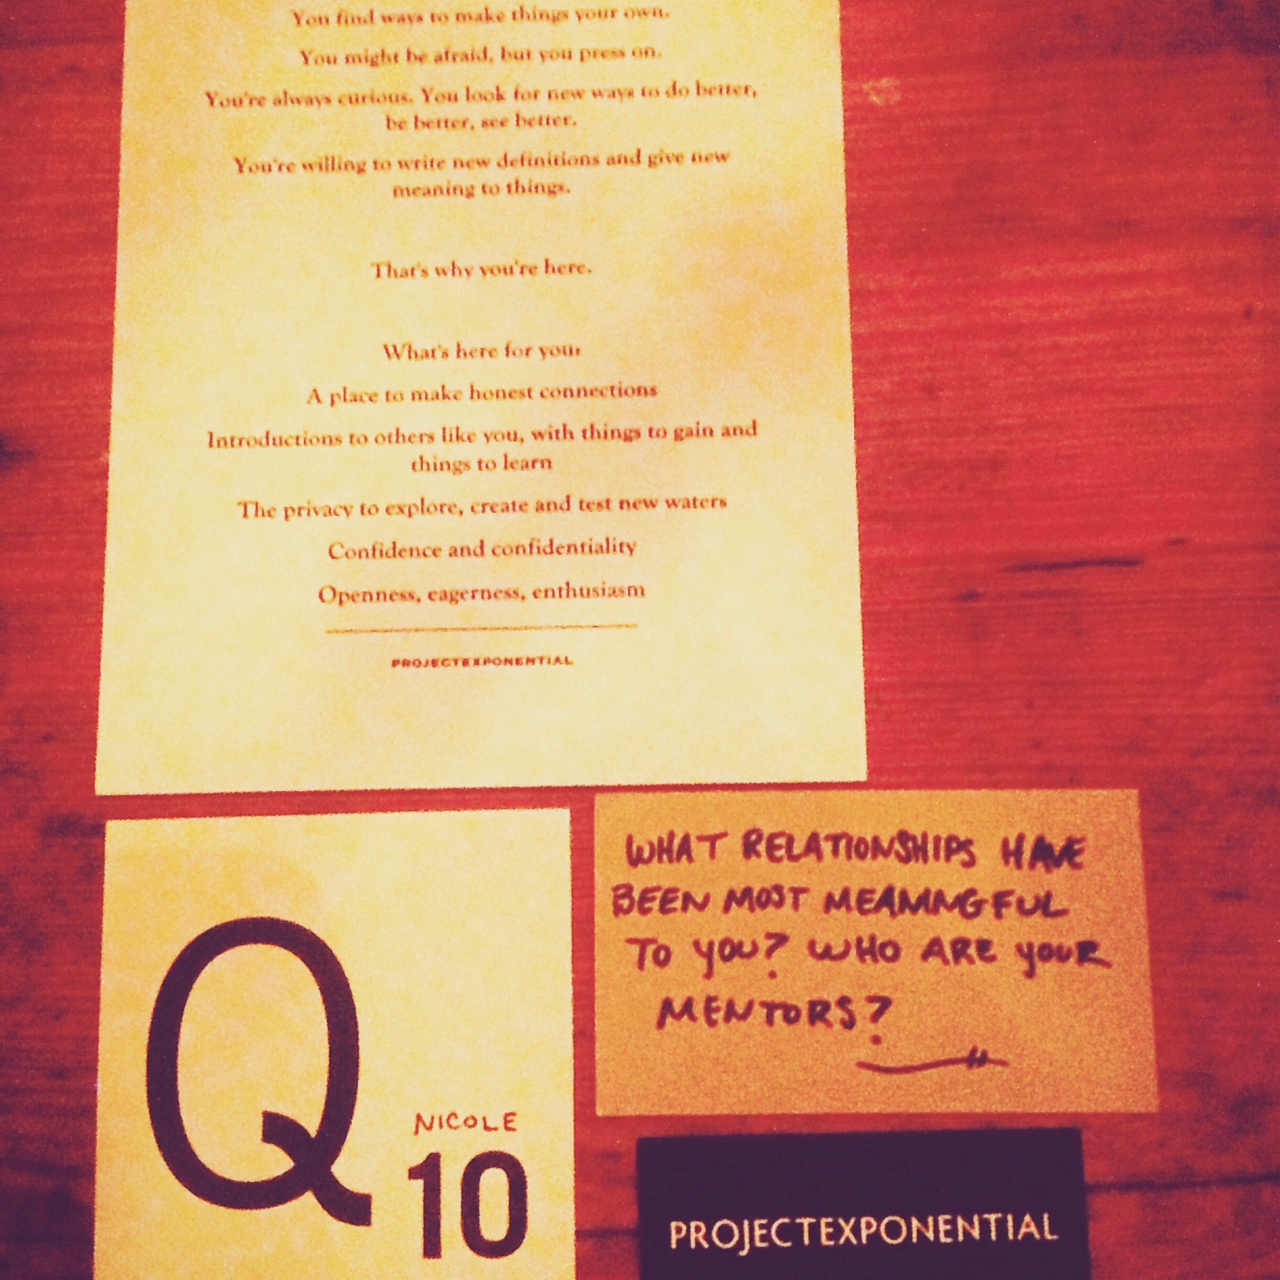 You find ways to make things your own.
You might be afraid, but you press on.
You're always curious. You look for new ways to do better,
be better, see better.
You're willing to write new definitions and give new
meaning to things.
That's why you're here.
What's here for you:
A place to make honest connections
Introductions to others like you, with things to gain and
things to learn
The privacy to explore, create and test new waters
Confidence and confidentiality
Openness, eagerness, enthusiasm
PROJECTEXPONENTIAL
WHAT RELATIONSHIPS HAVE
BEEN MOST MEANINGFUL
TO YOU? WHO ARE YOUR
MENTORS?
Q
NICOLE
10
PROJECTEXPONENTIAL